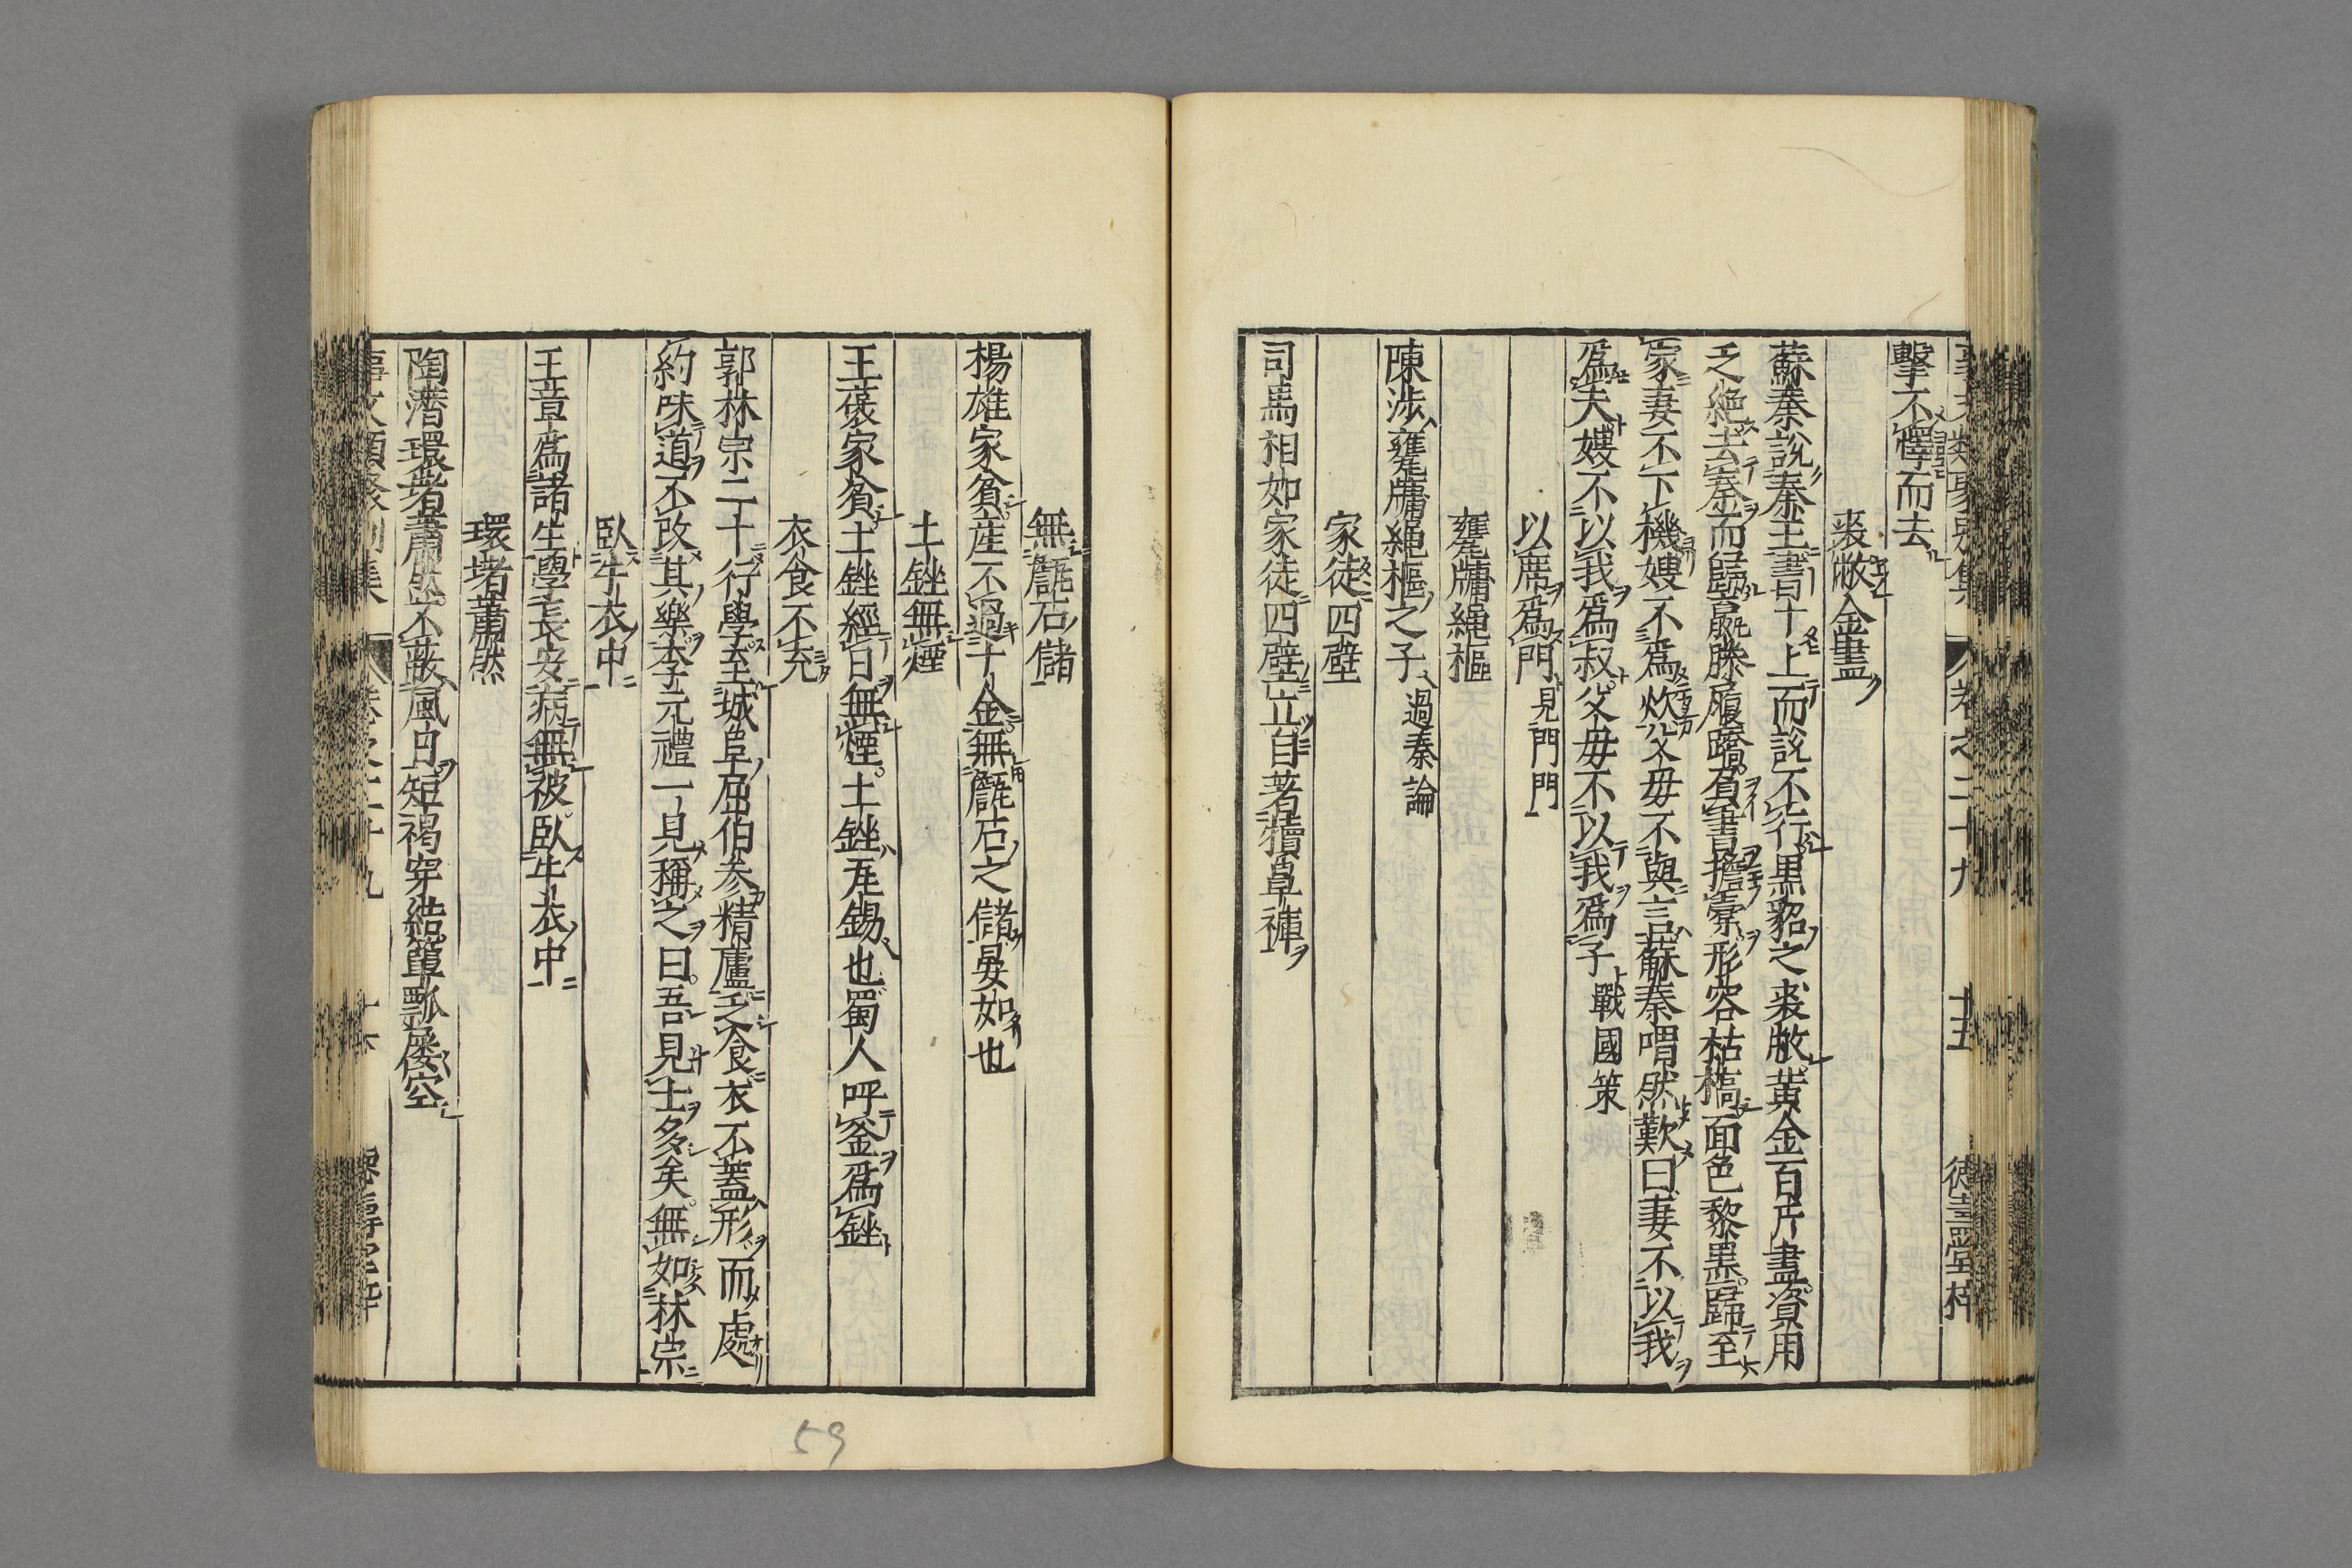 事文類聚別集 卷之二十九 十五 德壽堂梓
擊不懌而去
裘敝金盡
蘇秦說秦王書十上而說不行黒貂之裘敝黃金百斤盡資用
乏絶去秦而歸羸縢履蹻負書擔橐形容枯槁面色黎黒歸至
家妻不下機嫂不爲炊父母不與言蘇秦喟然歎曰妻不以我
爲夫嫂不以我爲叔父母不以我爲子戰國策
以席爲門見門門
甕牖繩樞
陳涉甕牖繩樞之子過秦論
家徒四壁
司馬相如家徒四壁立自著犢鼻褌
無甔石儲
楊雄家貧産不過十金無甔石之儲晏如也
土銼無煙
王褒家貧土銼經日無煙土銼瓦錫也蜀人呼釜爲銼
衣食不充
郭林宗二十行學至城阜屈伯参精廬乏食衣不蓋形而處
約味道不改其樂李元禮一見稱之曰吾見士多矣無如林宗
臥牛衣中
王章爲諸生學長安病無被臥牛衣中
環堵蕭然
陶潛環堵蕭然不蔽風日短褐穿結簞瓢屡空
事文類聚別集 卷之二十九 十六
59